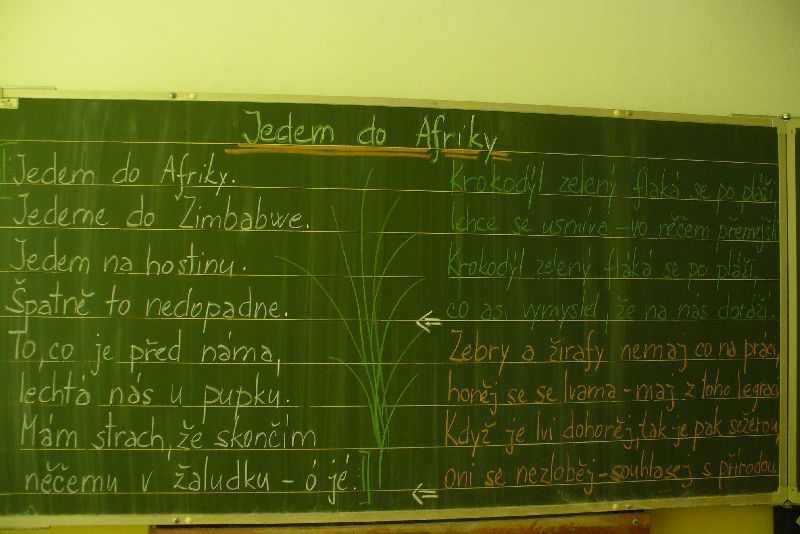 Jedem do Afriky
Jedem do Afriky.
Jedeme do Zimbabwe.
Jedem na hostinu.
Špatně to nedopadne.
To, co je před náma,
lechtá nás u pupku.
Mám strach, že skončím
něčemu v žaludku - ó jé.
Krokodýl zelený fláká se po pláži
lehce se usmívá - vo něčem přemejšlí
Krokodýl zelený fláká se po pláži,
co asi vymyslel, že na nás doráží.
Zebry a žirafy nemaj co na práci,
honěj se se lvama - maj z toho legraci
Když je lvi dohoněj, tak je pak sežerou,
oni se nezloběj - souhlasej s přírodou.